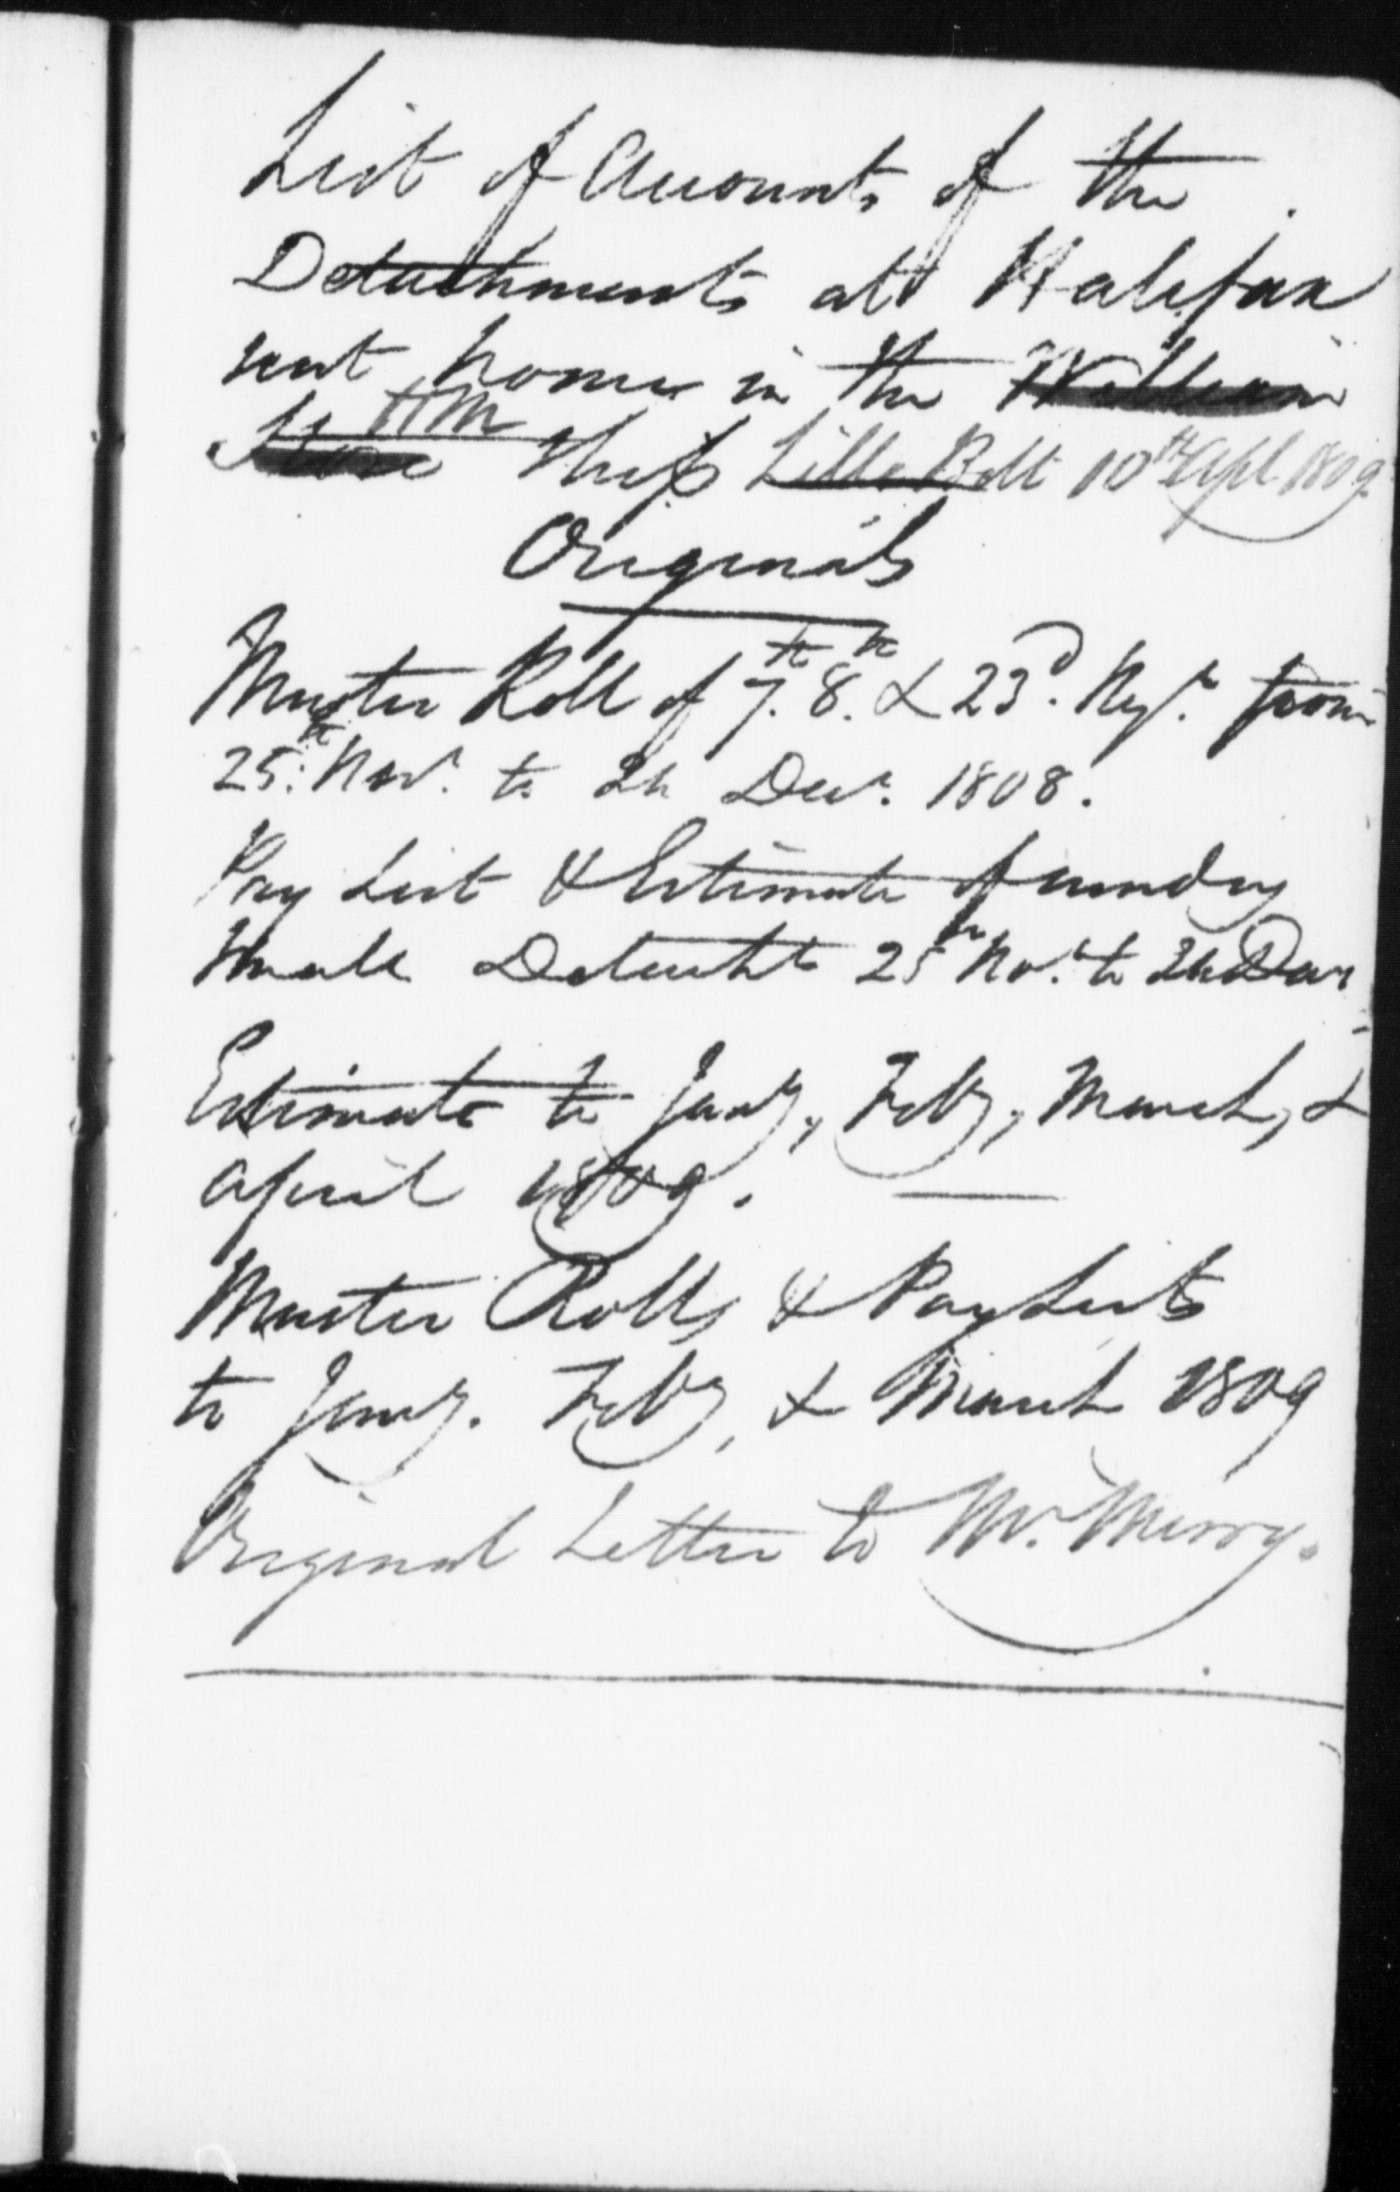 List of Accounts of the
Detachments at Halifax
sent home in the William
Store HM Ship Little Belt 10th Apl 1809
Originals
Muster Roll of 7th 8th & 23d Regts from
25th Novr to 24 Decr 1808.
Pay List & Estimate of sundry
small Detachts 25th Novr to 24 Decr
Estimate to Jany, Feby, March, &
April 1809.
Muster Rolls & Pay Lists
to Jany. Feby, & March 1809
Original Letter to Mr. Merry.